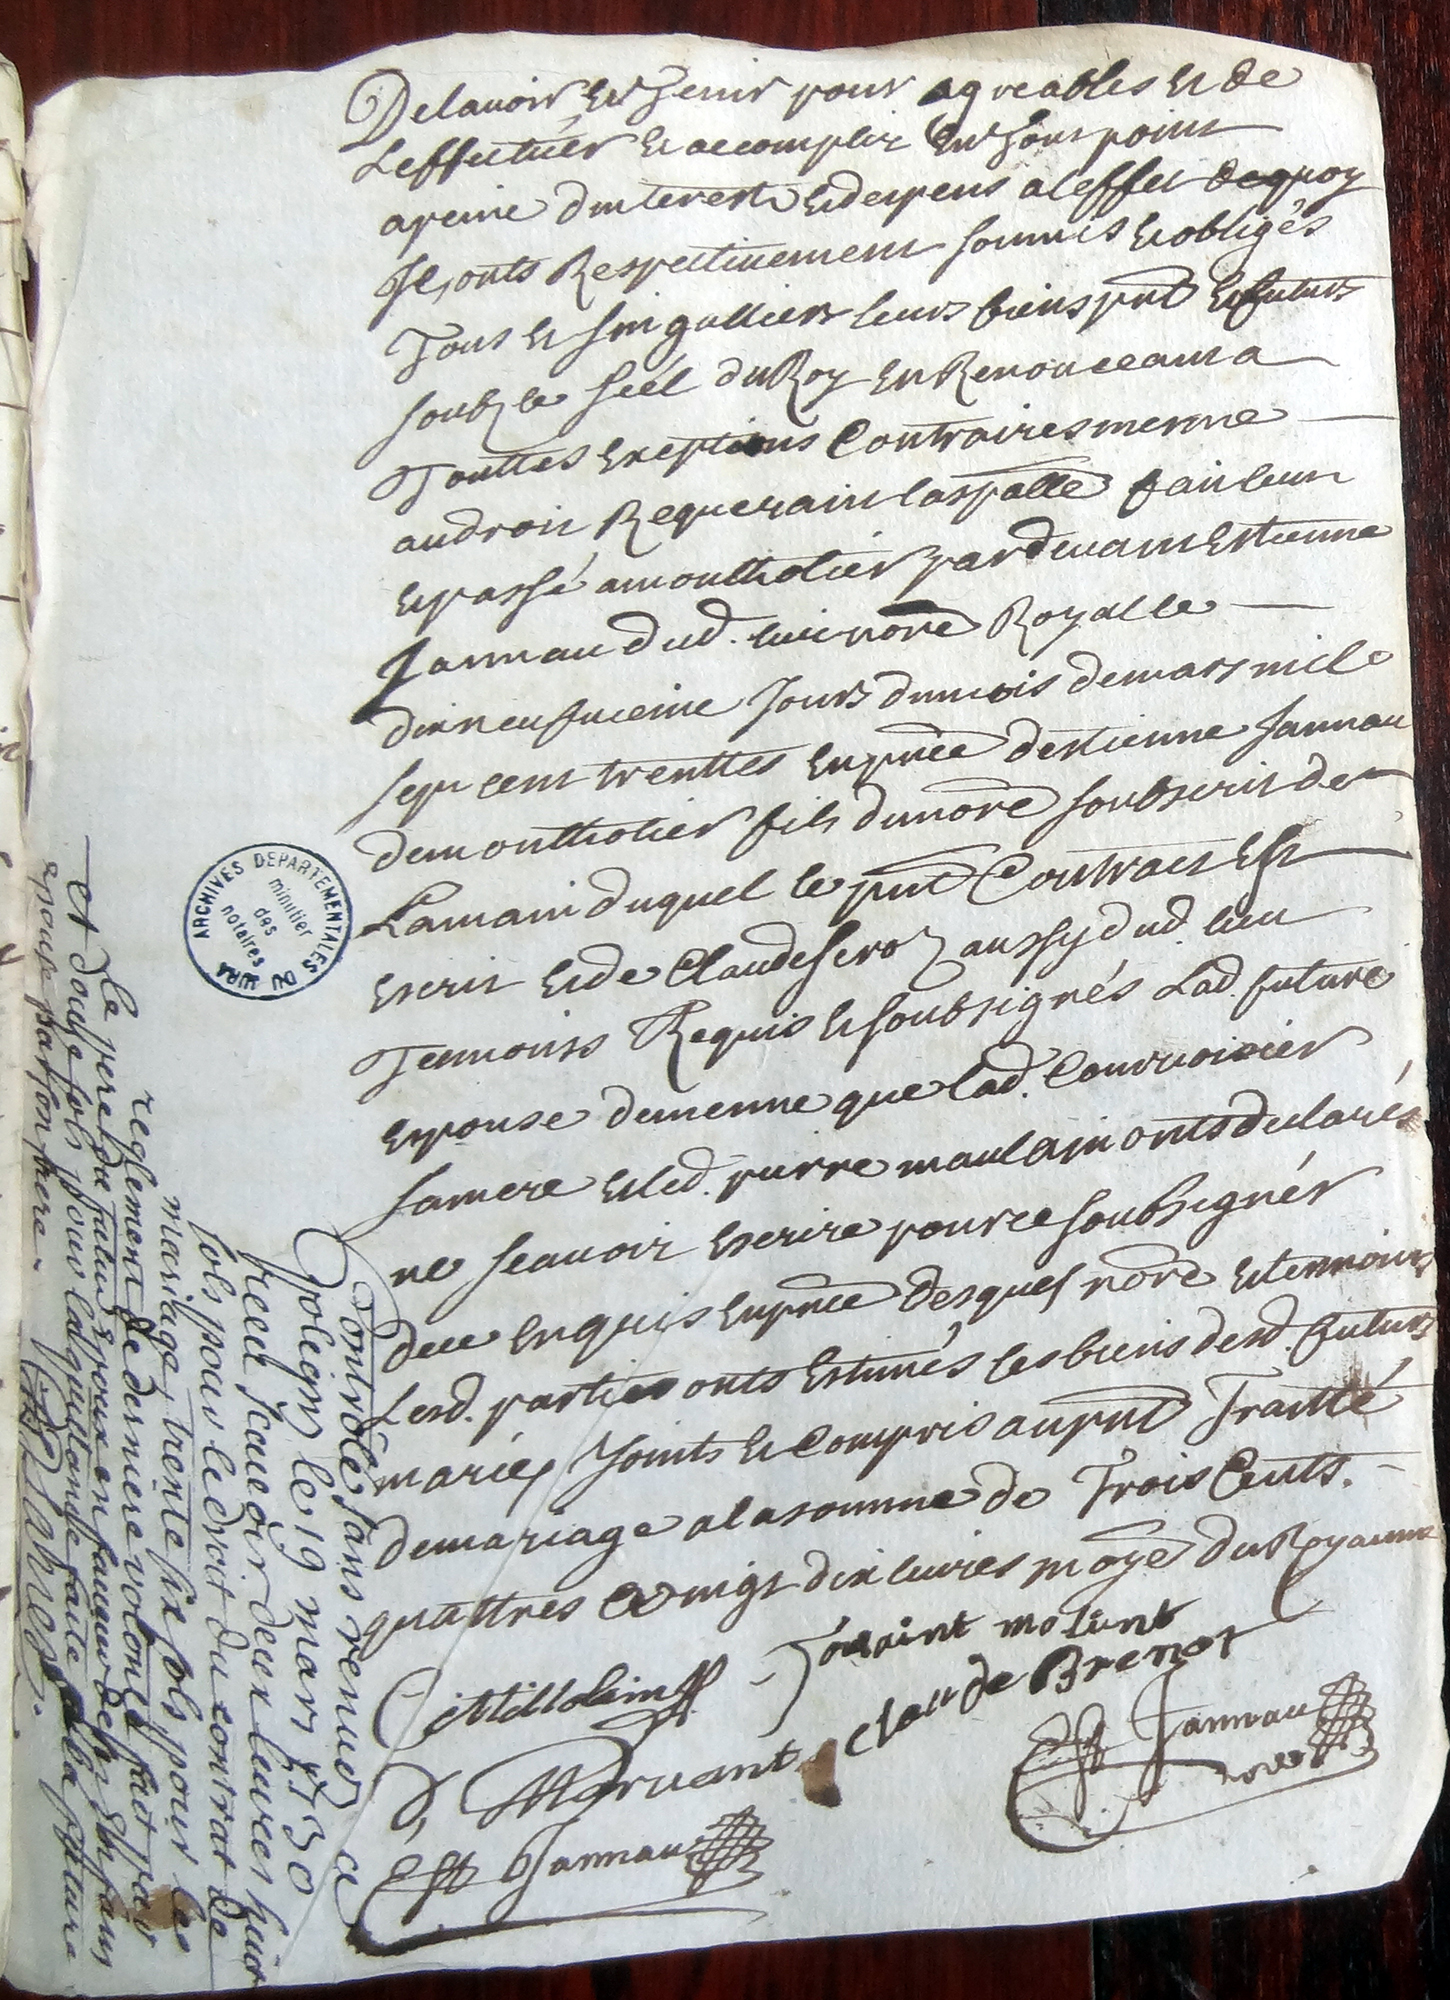 Delavoir et tenir pour agreables et de
Leffectuér et accomplir en tout point
apeine dinterest et despens a leffet dequoy
se sonts Respectivement soumis et obligés
Tous et singulliers leurs biens pnt et futurs
soubz le scél du Roy en Renonceant a
Touttes exeptions Contraires mesme
au droit Requerant laspalle fait leut
et passé a montholier pardevant Estienne
Jannau dud. lieu nore Royal le
dixneufvieme Jours du mois de mars mil
sept cent trenttes en pnce destienne Jannau
demontholier fils du nore soubscrit de
Lamain duquel le pnt Contract est
escrit et de Claude feroz aussy dud. lieu
Temoins Requis et soubsignés Lad. future
espouse demenne que lad. Courvoisier
sa mere et led. pierre maulain onts declarés
ne scavoir escrire pour ce soubsignér
de ce enquis en pnce desquels nore et temoins
Lesd. parties onts Estimés les biens desd. futurs
mariés Joints et compris au pnt Traitté
demariage a la somme de Trois Cents
quattres vingt dix livres moye du Royaume
Toussaint molint
Claude Brenot
Marvant
Est Jannau
Est Jannau nore
Controlé sans renvoy a
Poligny le 19 mars 1730
receu scavoir deux livres huit
sols pour le droit du contrat de
mariage, trente six sols pour les
reglement de derniere volonté fait par
le pere du futur epoux en faveur de ses enfans
et douze sols pour la quittance faite a la future
epouse par son pere.
ARCHIVES DEPARTEMENTALES DU JURA
minutier
des
notaires